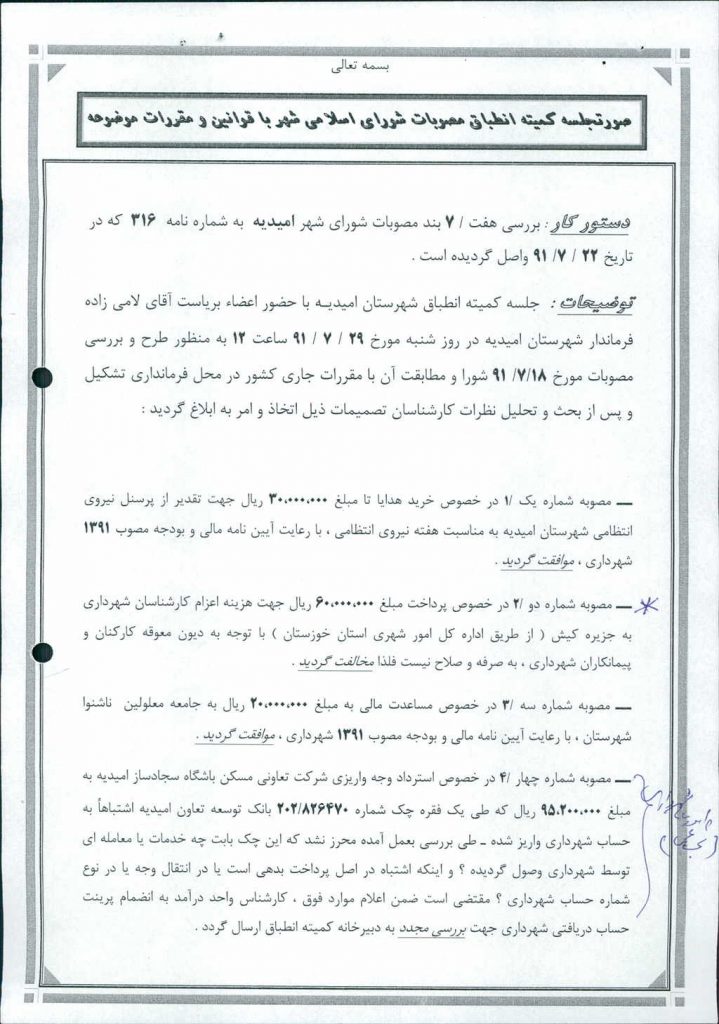 بسمه تعالی
صورتجلسه کمیته انطباق مصوبات شورای اسلامی شهر با قوانین و مقررات موضوعه
دستور کار : بررسی هفت / ۷ بند مصوبات شورای شهر امیدیه به شماره نامه ۳۱۶ که در
تاریخ ۲۲ / ۷ /۹۱ واصل گردیده است .
توضیحات : جلسه کمیته انطباق شهرستان امیدیـه با حضور اعضاء بریاست آقای لامی زاده
فرماندار شهرستان امیدیه در روز شنبه مورخ ۲۹ / ۷ / ۹۱ ساعت ۱۲ به منظور طرح و بررسی
مصوبات مورخ ۹۱ /۷/۱۸ شورا و مطابقت آن با مقررات جاری کشور در محل فرمانداری تشکیل
و پس از بحث و تحلیل نظرات کارشناسان تصمیمات ذیل اتخاذ و امر به ابلاغ گردید :
ــ مصوبه شماره یک /۱ در خصوص خرید هدایا تا مبلغ ۳۰،۰۰۰،۰۰۰ ریال جهت تقدیر از پرسنل نیروی
انتظامی شهرستان امیدیه به مناسبت هفته نیروی انتظامی ، با رعایت آیین نامه مالی و بودجه مصوب ۱۳۹۱
شهرداری ، موافقت گردید .
ــ مصوبه شماره دو /۲ در خصوص پرداخت مبلغ ۶۰،۰۰۰،۰۰۰ ریال جهت هزینه اعزام کارشناسان شهرداری
به جزیره کیش ( از طریق اداره کل امور شهری استان خوزستان ) با توجه به دیون معوقه کارکنان و
پیمانکاران شهرداری ، به صرفه و صلاح نیست فلذا مخالفت گردید .
ــ مصوبه شماره سه /۳ در خصوص مساعدت مالی به مبلغ ۲۰،۰۰۰،۰۰۰ ریال به جامعه معلولین ناشنوا
شهرستان ، با رعایت آیین نامه مالی و بودجه مصوب ۱۳۹۱ شهرداری ، موافقت گردید .
ــ مصوبه شماره چهار /۴ در خصوص استرداد وجه واریزی شرکت تعاونی مسکن باشگاه سجادساز امیدیه به
مبلغ ۹۵،۲۰۰،۰۰۰ ریال که طی یک فقره چک شماره ۲۰۲/۸۲۶۴۷۰ بانک توسعه تعاون امیدیه اشتباهاً به
حساب شهرداری واریز شده ـ طی بررسی بعمل آمده محرز نشد که این چک بابت چه خدمات یا معامله ای
توسط شهرداری وصول گردیده ؟ و اینکه اشتباه در اصل پرداخت بدهی است یا در انتقال وجه یا در نوع
شماره حساب شهرداری ؟ مقتضی است ضمن اعلام موارد فوق ، کارشناس واحد درآمد به انضمام پرینت
حساب دریافتی شهرداری جهت بررسی مجدد به دبیرخانه کمیته انطباق ارسال گردد .